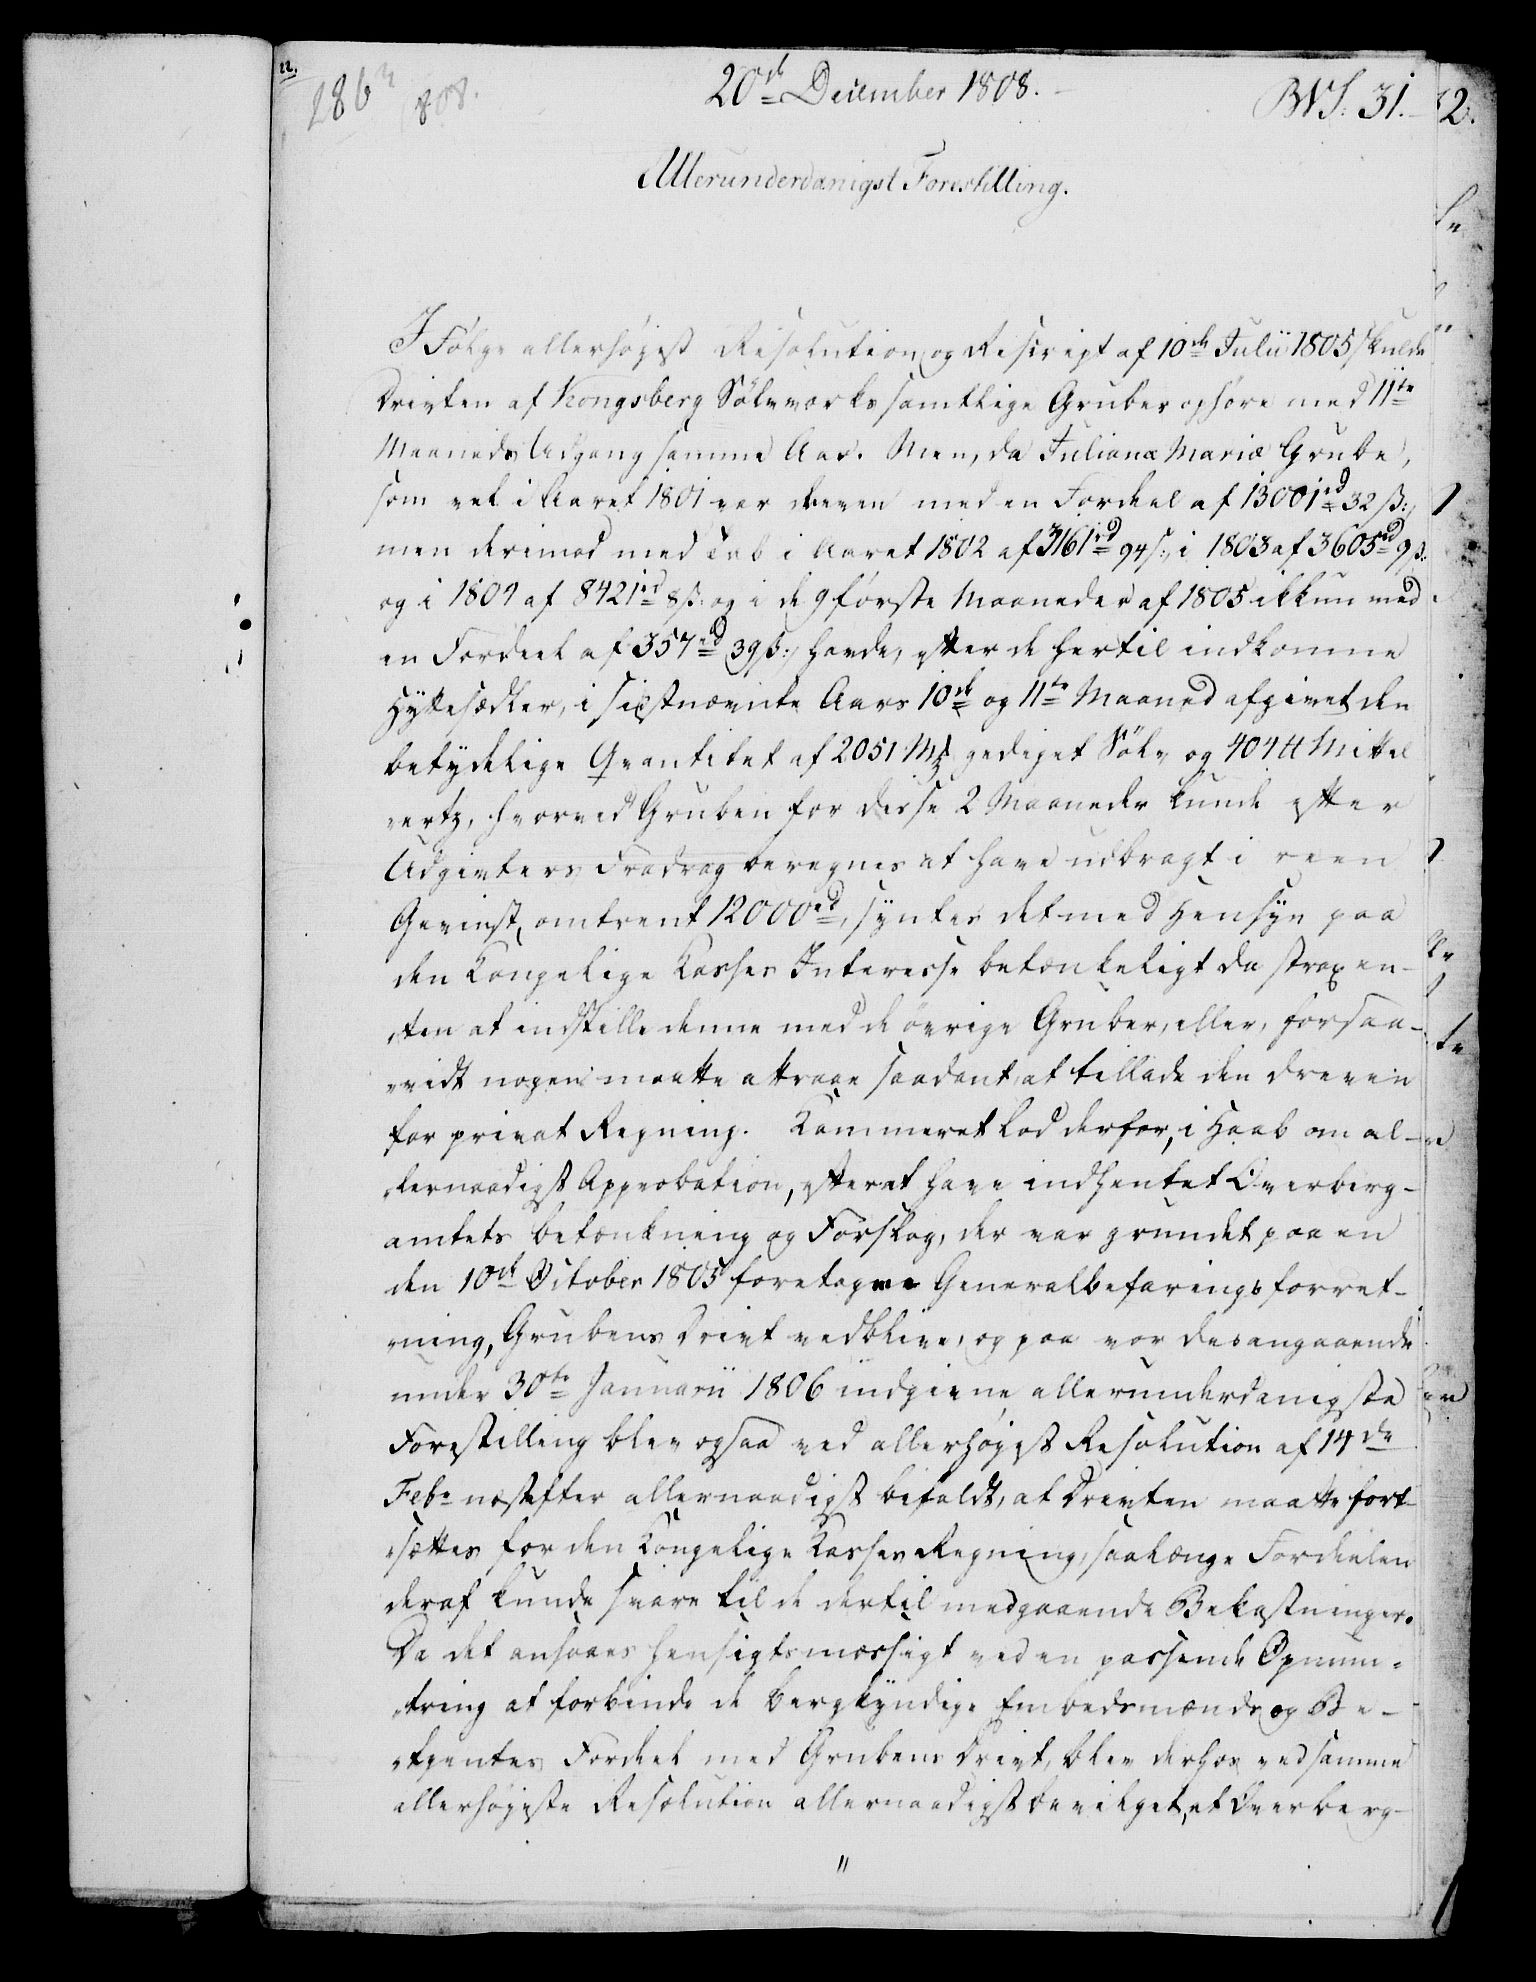 20de December 1808.
BVS. 31.
Allerunderdanigst Forestilling.
I Følge allerhøjest Resolution og Rescript af 10de Julii 1805 skulde
Driften af Kongsberg Sölvverks samtlige Gruber ophøre med 11te
Maaneds Udgang samme Aar. Men, da Julianæ Mariæ Grube,
som vel i Aaret 1801 var dreven med en Fordeel af 13001rd 32 ß:,
men derimod med Tab i Aaret 1802 af 3161rd 94 ß:, i 1803 af 3605rd 9 ß:
og i 1804 af 8421rd 8 ß: og i de 9 første Maaneder af 1805 ikkun med
en Fordeel af 357rd 39 ß:, havde, efter de hertil indkomne
Hyttesedler, i sidstnævnte Aars 10de og 11te Maaned afgivet den
betydelige Qvantitet af 2051 Mk gediget Sölv og 404 ℔ Mittel
ertz, hvorved Gruben for disse 2 Maaneder kunde efter
Udgivters Fradrag beregnes at have udbragt i reen
Gevinst, omtrent 12000rd, syntes det med Hensyn paa
den Kongelige Kasses Interesse betænkeligt da strax en-
ten at indstille denne med de övrige Gruber, eller, forsaa-
vidt nogen maatte attraae saadant, at tillade den dreven
for privat Regning. Kammeret lod derfor, i Haab om al-
lernaadigst Approbation, efterat have indhentet Overberg-
amtets betænkning og Forslag, der var grundet paa en
den 10de October 1805 foretagne Generalbefaringsforret-
ning, Grubens Drivt vedblive, og paa vor desangaaende
under 30te Januarii 1806 indgivne allerunderdanigste
Forestilling blev ogsaa ved allerhøjest Resolution af 14de
Febr. næstefter allernaadigst befaldt, at Drivten maatte fort-
sættes for den Kongelige Kasses Regning, saalænge Fordeelen
deraf kunde svare til de dertil medgaaende Bekostninger.
Da det ansaaes hensigtsmæssigt ved en passende Opmun-
tring at forbinde de bergkyndige Embedsmænds og Be-
tjentes Fordeel med Grubens Drivt, blev derhos ved samme
allerhøjeste Resolution allernaadigst bevilget, at Overberg-